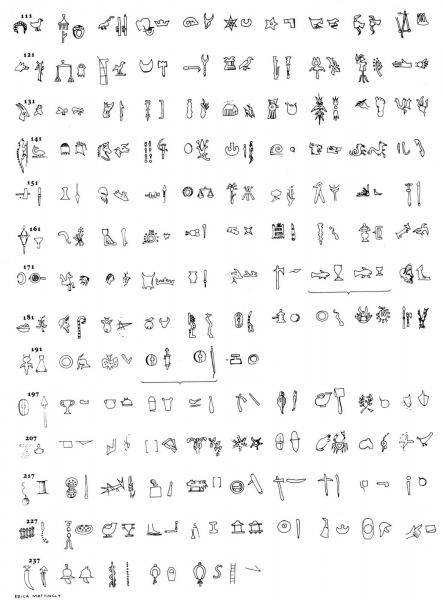 111
121
131
141
151
161
171
181
191
197
207
217
227
237
ERICA MATTINGLY